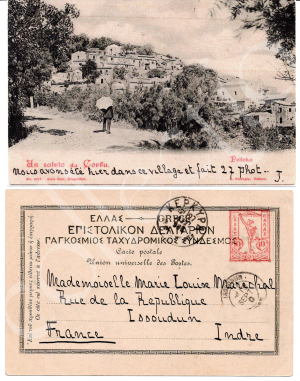 Un saluto da Corfu. Peleka
nous avons été hier dans ce village et fait 27 phot... J.
ΕΛΛΑΣ GRÈCE
ΕΠΙΣΤΟΛΙΚΟΝ ΔΕΛΤΑΡΙΟΝ
ΠΑΓΚΟΣΜΙΟΣ ΤΑΧΥΔΡΟΜΙΚΟΣ ΣΥΝΔΕΣΜΟΣ
Carte postale
Union universelle des Postes.
Mademoiselle Marie Louise Maréchal
Rue de la République
Issoudun
France Indre